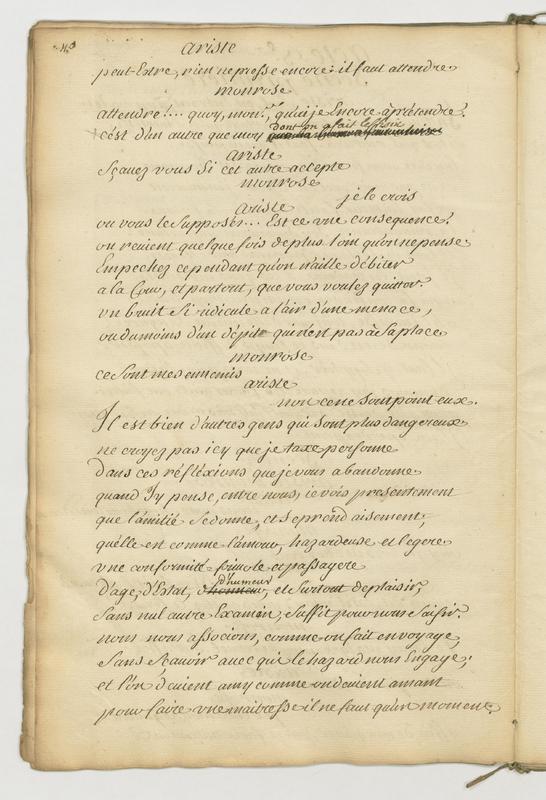 ariste
peut-Estre, rien ne presse encore: il faut attendre
monrose
attendre!... quoy, monsr., quai je Encore a prétendre?
dont on a fait le choix
c'est d'un autre que moy
ariste
Sçauez vous Si cet autre accepte
monrose
je le crois
ariste
ou vous le Supposés... Est ce vne consequence?
on reuient quelque fois de plus loin qu'on ne pense
Empechez cependant qu'on n'aille débiter
a la Cour, et partout, que vous voulez quitter.
vn bruit Si ridicule a l'air d'une menace,
ou du moins d'un dépit qui n'est pas à Sa place
monrose
ce Sont mes ennemis
ariste
non ce ne Sont point eux.
Il est bien d'autres gens qui Sont plus dangereux
ne croyez pas icy que je taxe personne
dans ces réfléxions que je vous abandonne
quand J'y pense, entre nous, je vois presentement
que l'amitié Se donne, et Se prend aisement,
qu'elle est comme l'amour, hazardeuse et legere
vne conformité friuole et passagere
d'humeur
d'age, d'Estat, d'honneur, et Surtout de plaisir,
Sans nul autre Examen, Suffit pour nous Saisir.
nous nous associons, comme on fait en voyage,
Sans Scauoir auec qui le hazard nous Engage;
et l'on deuient amy comme on deuient amant
pour faire vne maitresse il ne faut qu'un moment